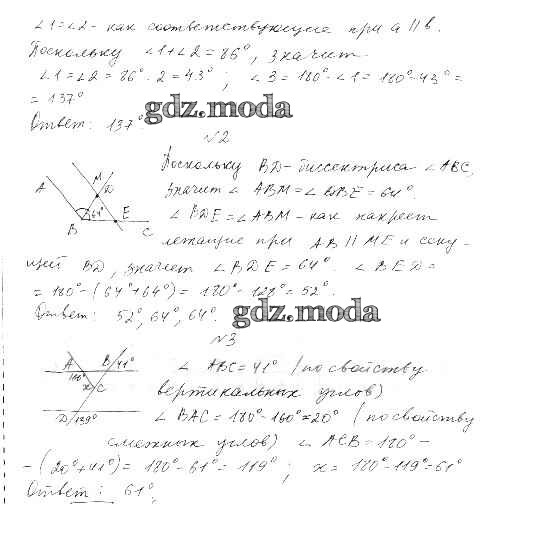 ∠1=∠2 - как соответствующие при a || b.
Поскольку ∠1+∠2 = 86°, значит
∠1=∠2 = 86° : 2 = 43° ; ∠3 = 180° - ∠1 = 180° - 43° =
= 137°
Ответ: 137°
gdz.moda
№2
Поскольку BD - биссектриса ∠ABC,
значит ∠ABM = ∠DBE = 64°.
∠BDE = ∠ABM - как накрест
лежащие при AB || ME и секу-
щей BD, значит ∠BDE = 64°. ∠BED =
= 180° - (64°+64°) = 180° - 128° = 52°.
Ответ: 52°, 64°, 64°.
A
M
D
64°
E
B
C
gdz.moda
№3
∠ABC = 41° (по свойству
вертикальных углов)
∠BAC = 180° - 160° = 20° (по свойству
смежных углов) ∠ACB = 180° -
- (20°+41°) = 180° - 61° = 119° ; x = 180° - 119° = 61°
Ответ: 61°.
A
B
41°
160°
x
C
D
139°